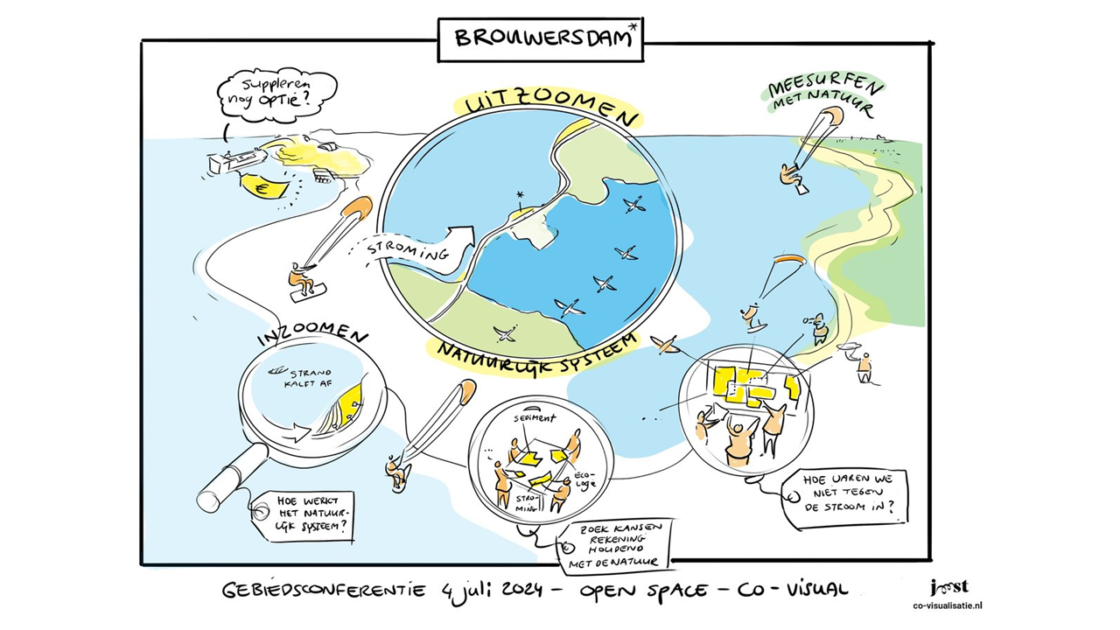 BROUWERSDAM*
suppleren
nog optie?
UITZOOMEN
MEESURFEN
MET NATUUR
*
STROMING
NATUURLIJK SYSTEEM
INZOOMEN
STRAND
KALFT AF
€
SEDIMENT
ECO-
LOGIE
STRO-
MING
HOE WERKT
HET NATUUR-
LIJK SYSTEEM?
ZOEK KANSEN
REKENING
HOUDEND
MET DE NATUUR
HOE VAREN WE
NIET TEGEN
DE STROOM IN?
GEBIEDSCONFERENTIE 4 juli 2024 - OPEN SPACE - CO - VISUAL
joost
co-visualisatie.nl